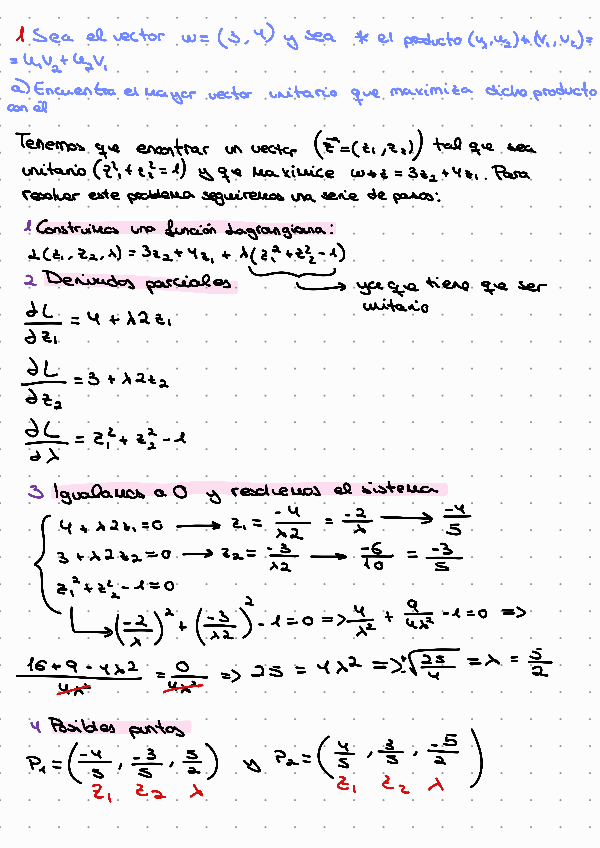 1 Sea el vector w = (3, 4) y sea * el producto (u₁,u₂)*(v₁,v₂)=
= u₁v₂ + u₂v₁
a) Encuentra el mayor vector unitario que maximiza dicho producto
con él
Tenemos que encontrar un vector (z⃗=(z₁,z₂)) tal que sea
unitario (z₁²+z₂²=1) y que maximice w*z = 3z₂+4z₁. Para
resolver este problema seguiremos una serie de pasos:
1 Construimos una función lagrangiana:
L(z₁, z₂, λ) = 3z₂+4z₁ + λ(z₁²+z₂²-1)
2 Derivadas parciales
ya que tiene que ser
unitario
∂L/∂z₁ = 4 + λ2z₁
∂L/∂z₂ = 3 + λ2z₂
∂L/∂λ = z₁² + z₂² - 1
3 Igualamos a 0 y resolvemos el sistema
4 + λ2z₁ = 0 → z₁ = -4/λ2 = -2/λ → -4/5
3 + λ2z₂ = 0 → z₂ = -3/λ2 → -6/10 = -3/5
z₁² + z₂² - 1 = 0
(-2/λ)² + (-3/λ2)² - 1 = 0 => 4/λ² + 9/4λ² - 1 = 0 =>
16+9-4λ²/4λ² = 0/4λ² => 25 = 4λ² => ±√25/4 = λ = 5/2
4 Posibles puntos
P₁ = (-4/5, -3/5, 5/2) y P₂ = (4/5, 3/5, -5/2)
z₁ z₂ λ z₁ z₂ λ